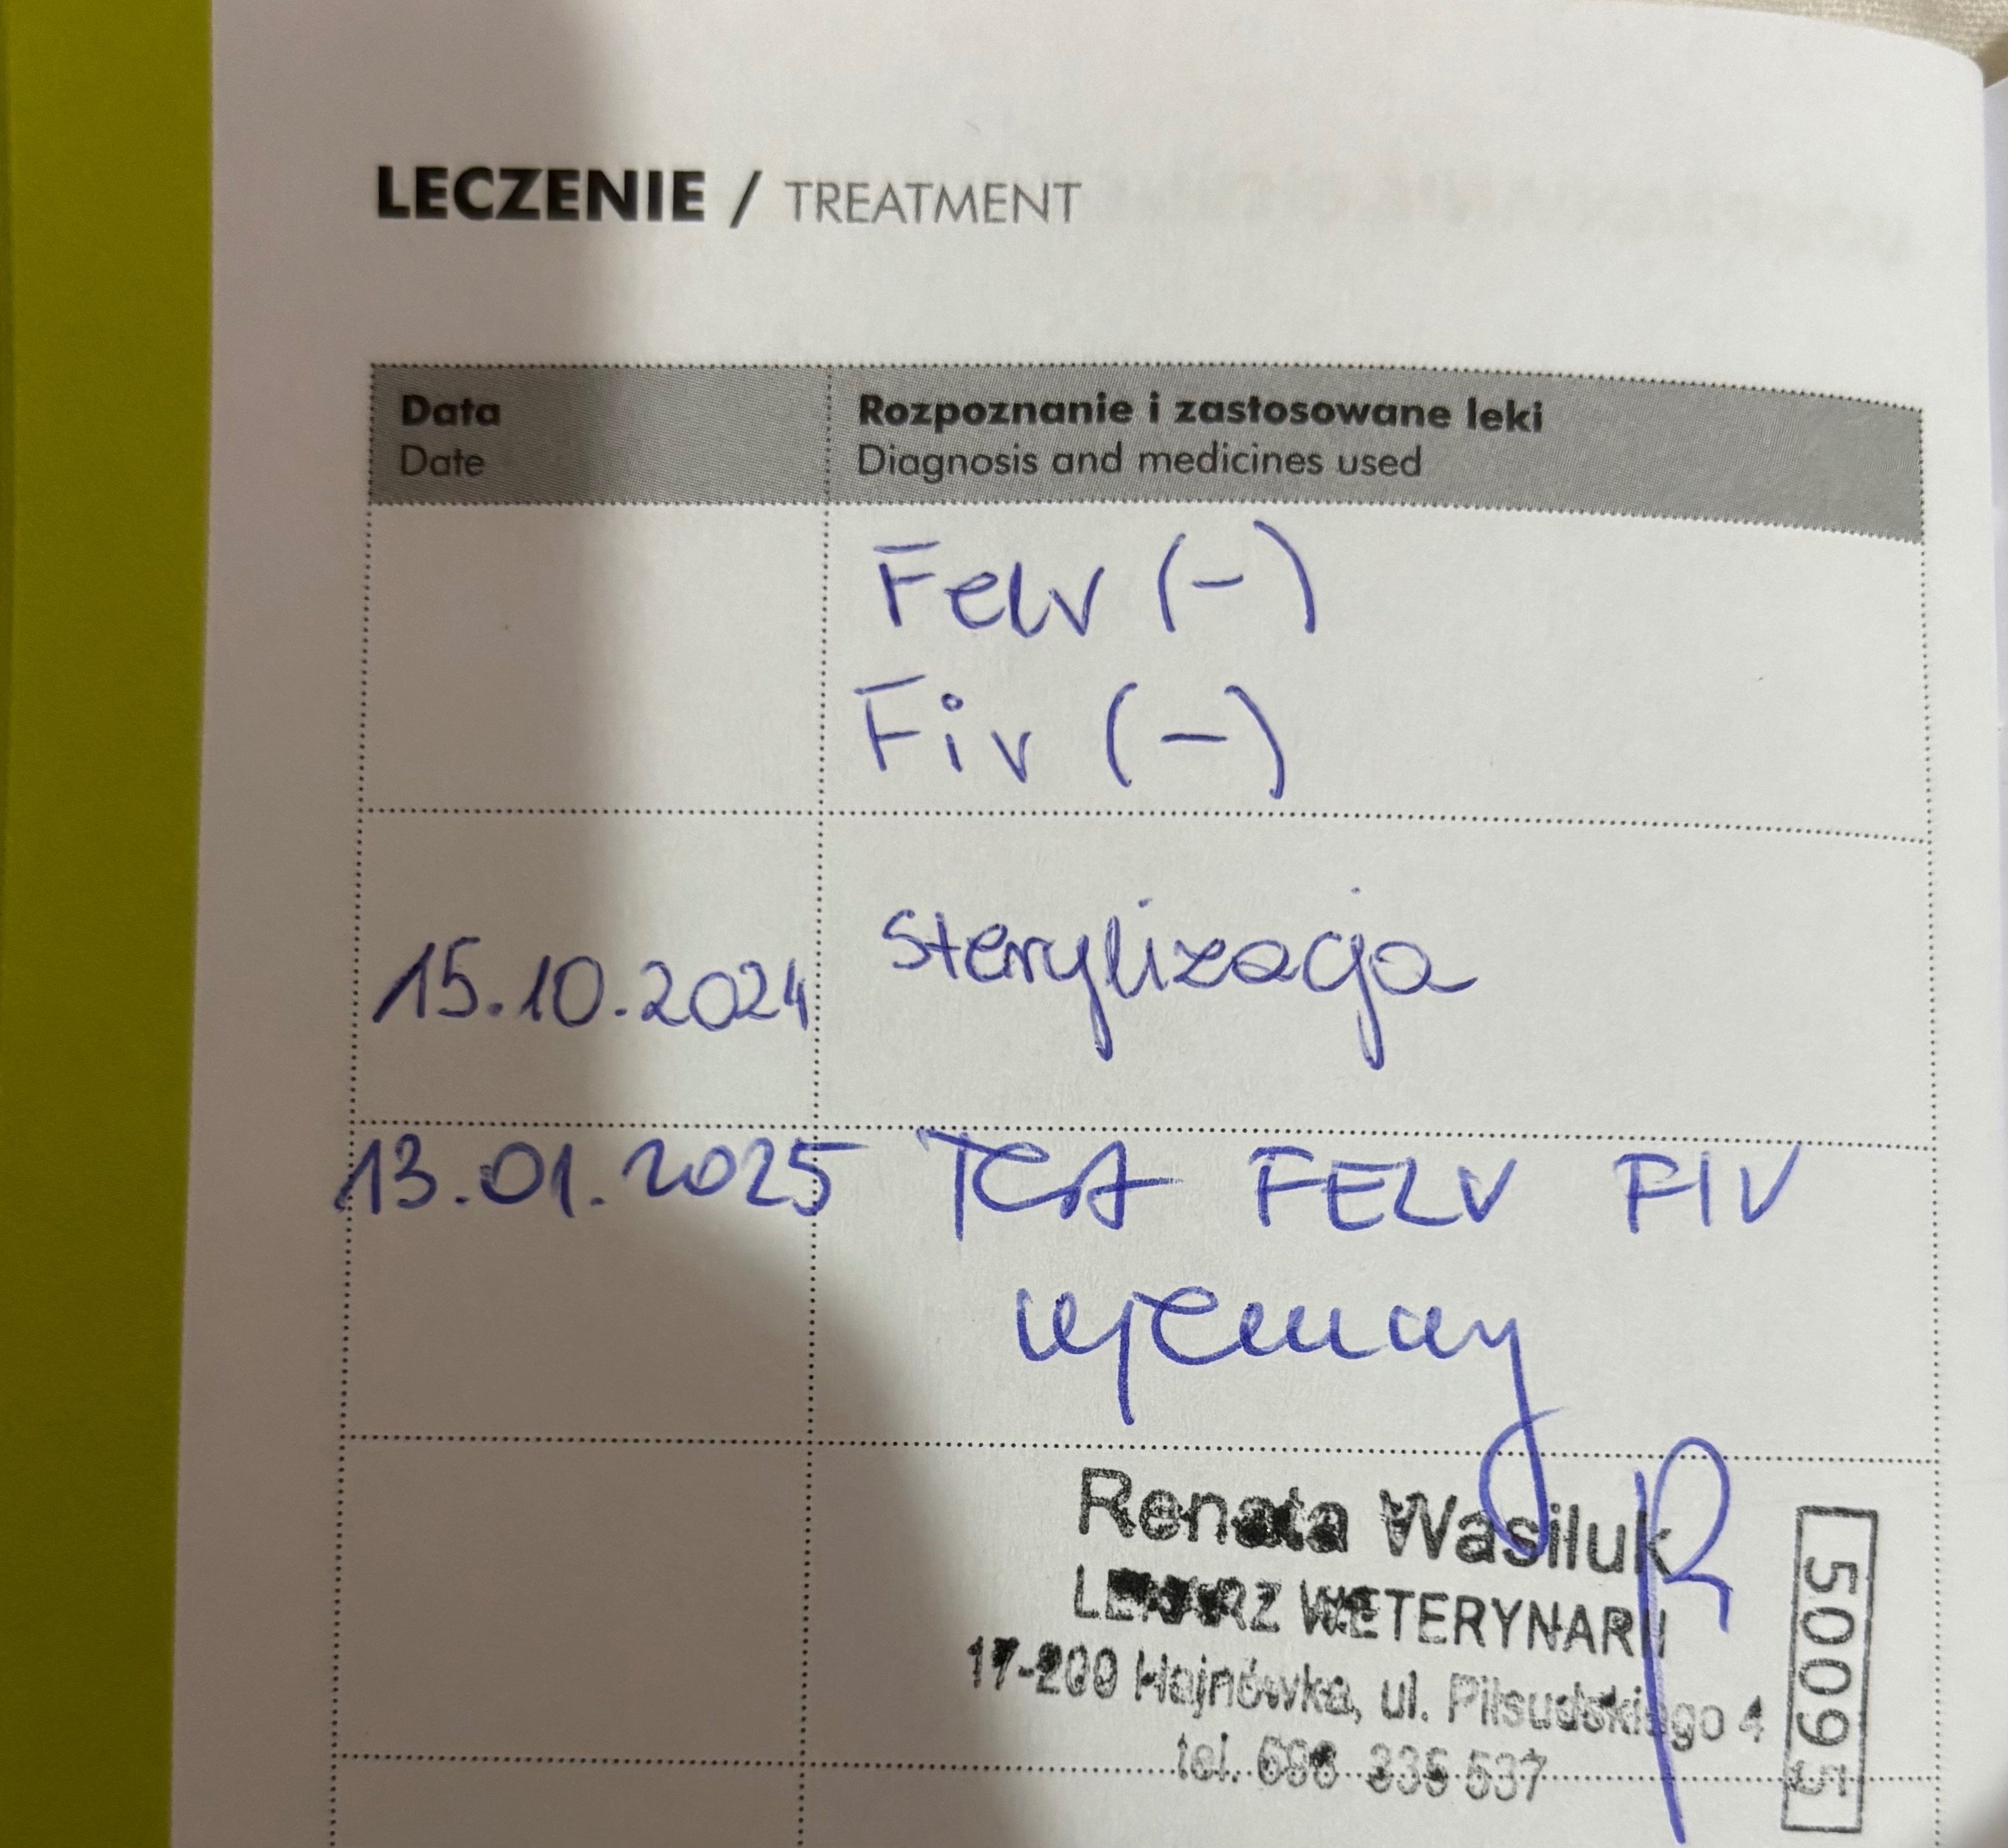 LECZENIE / TREATMENT
Data
Date
Rozpoznanie i zastosowane leki
Diagnosis and medicines used
Felv (-)
Fiv (-)
15.10.2024 sterylizacja
13.01.2025 Test FELV FIV
ujemny
Renata Wasiluk
LEKARZ WETERYNARII
17-200 Hajnówka, ul. Piłsudskiego 4
tel. 335 537
50095